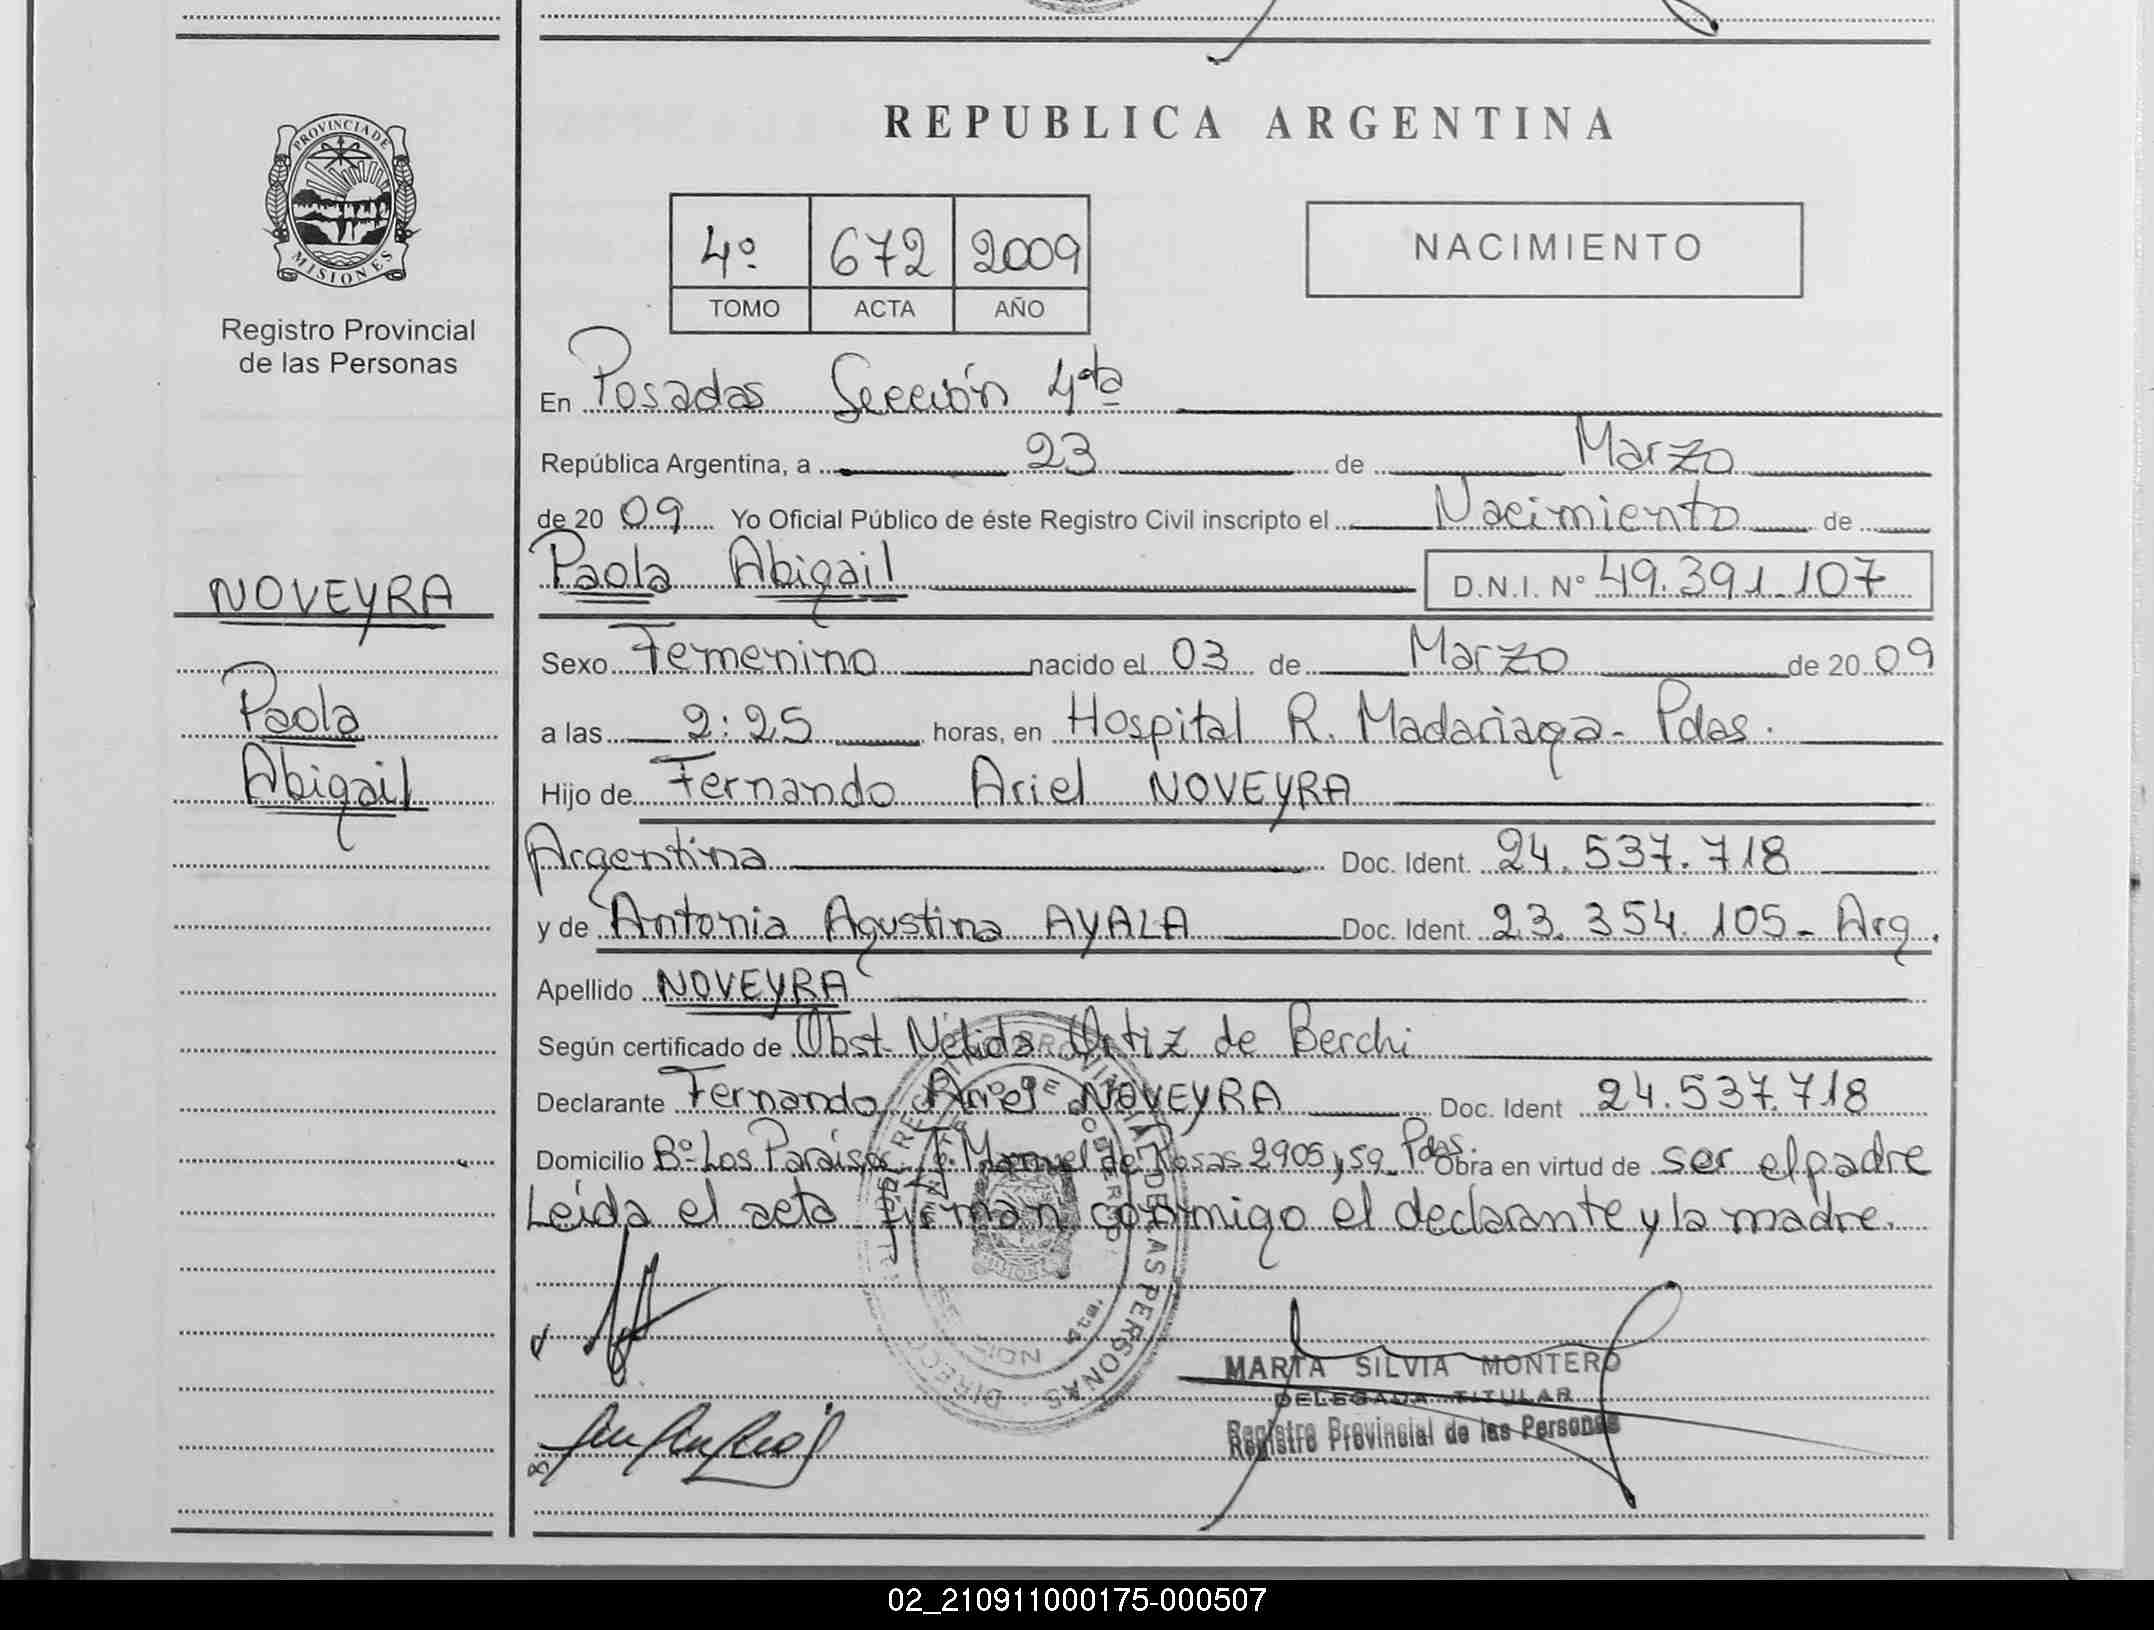 REPUBLICA ARGENTINA
PROVINCIA DE
MISIONES
Registro Provincial
de las Personas
NOVEYRA
Paola
Abigail
4º 672 2009
TOMO ACTA AÑO
NACIMIENTO
En Posadas Sección 4ta
República Argentina, a 23 de Marzo
de 20 09 Yo Oficial Público de éste Registro Civil inscripto el Nacimiento de
Paola Abigail D.N.I. Nº 49.391.107
Sexo Femenino nacido el 03 de Marzo de 20 09
a las 2:25 horas, en Hospital R. Madariaga - Pdas.
Hijo de Fernando Ariel NOVEYRA
Argentina Doc. Ident. 24.537.718
y de Antonia Agustina AYALA Doc. Ident. 23.354.105 - Arg.
Apellido NOVEYRA
Según certificado de Obst. Nélida Ortiz de Berchi
Declarante Fernando Ariel NOVEYRA Doc. Ident 24.537.718
Domicilio Bº Los Paraisos J. Manuel de Rosas 2905 y 59 Pdas. Obra en virtud de ser el padre
Leída el acta firman conmigo el declarante y la madre.
MARTA SILVIA MONTERO
DELEGADA TITULAR
Registro Provincial de las Personas
02_210911000175-000507